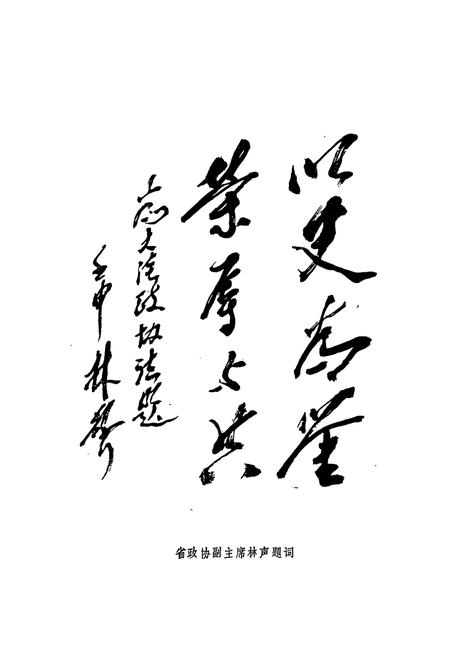 以史为鉴
荣辱与共
为大洼政协志题
壬申 林声
省政协副主席林声题词